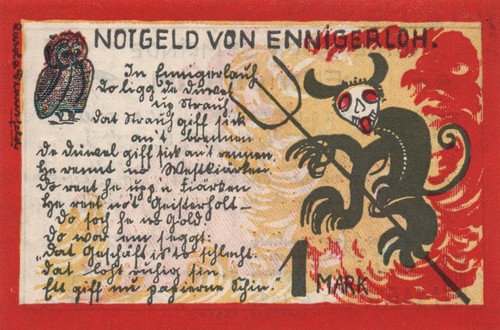 NOTGELD VON ENNIGERLOH.
In Ennigerlauh
Do ligg de Düwel
up Strauh
dat Strauh giff sick
an't brennen
De Düwel giff sick an't rennen,
He rennt no Westkiärken
Do rent he upp'n Kiärken
He rent no't Geisterholt –
Do soch he no Gold
Do wor em seggt:
„Dat Geschäft is to schlecht.
dat lost ruhig sin.
Ett giff nu papierne Schin."
1 MARK